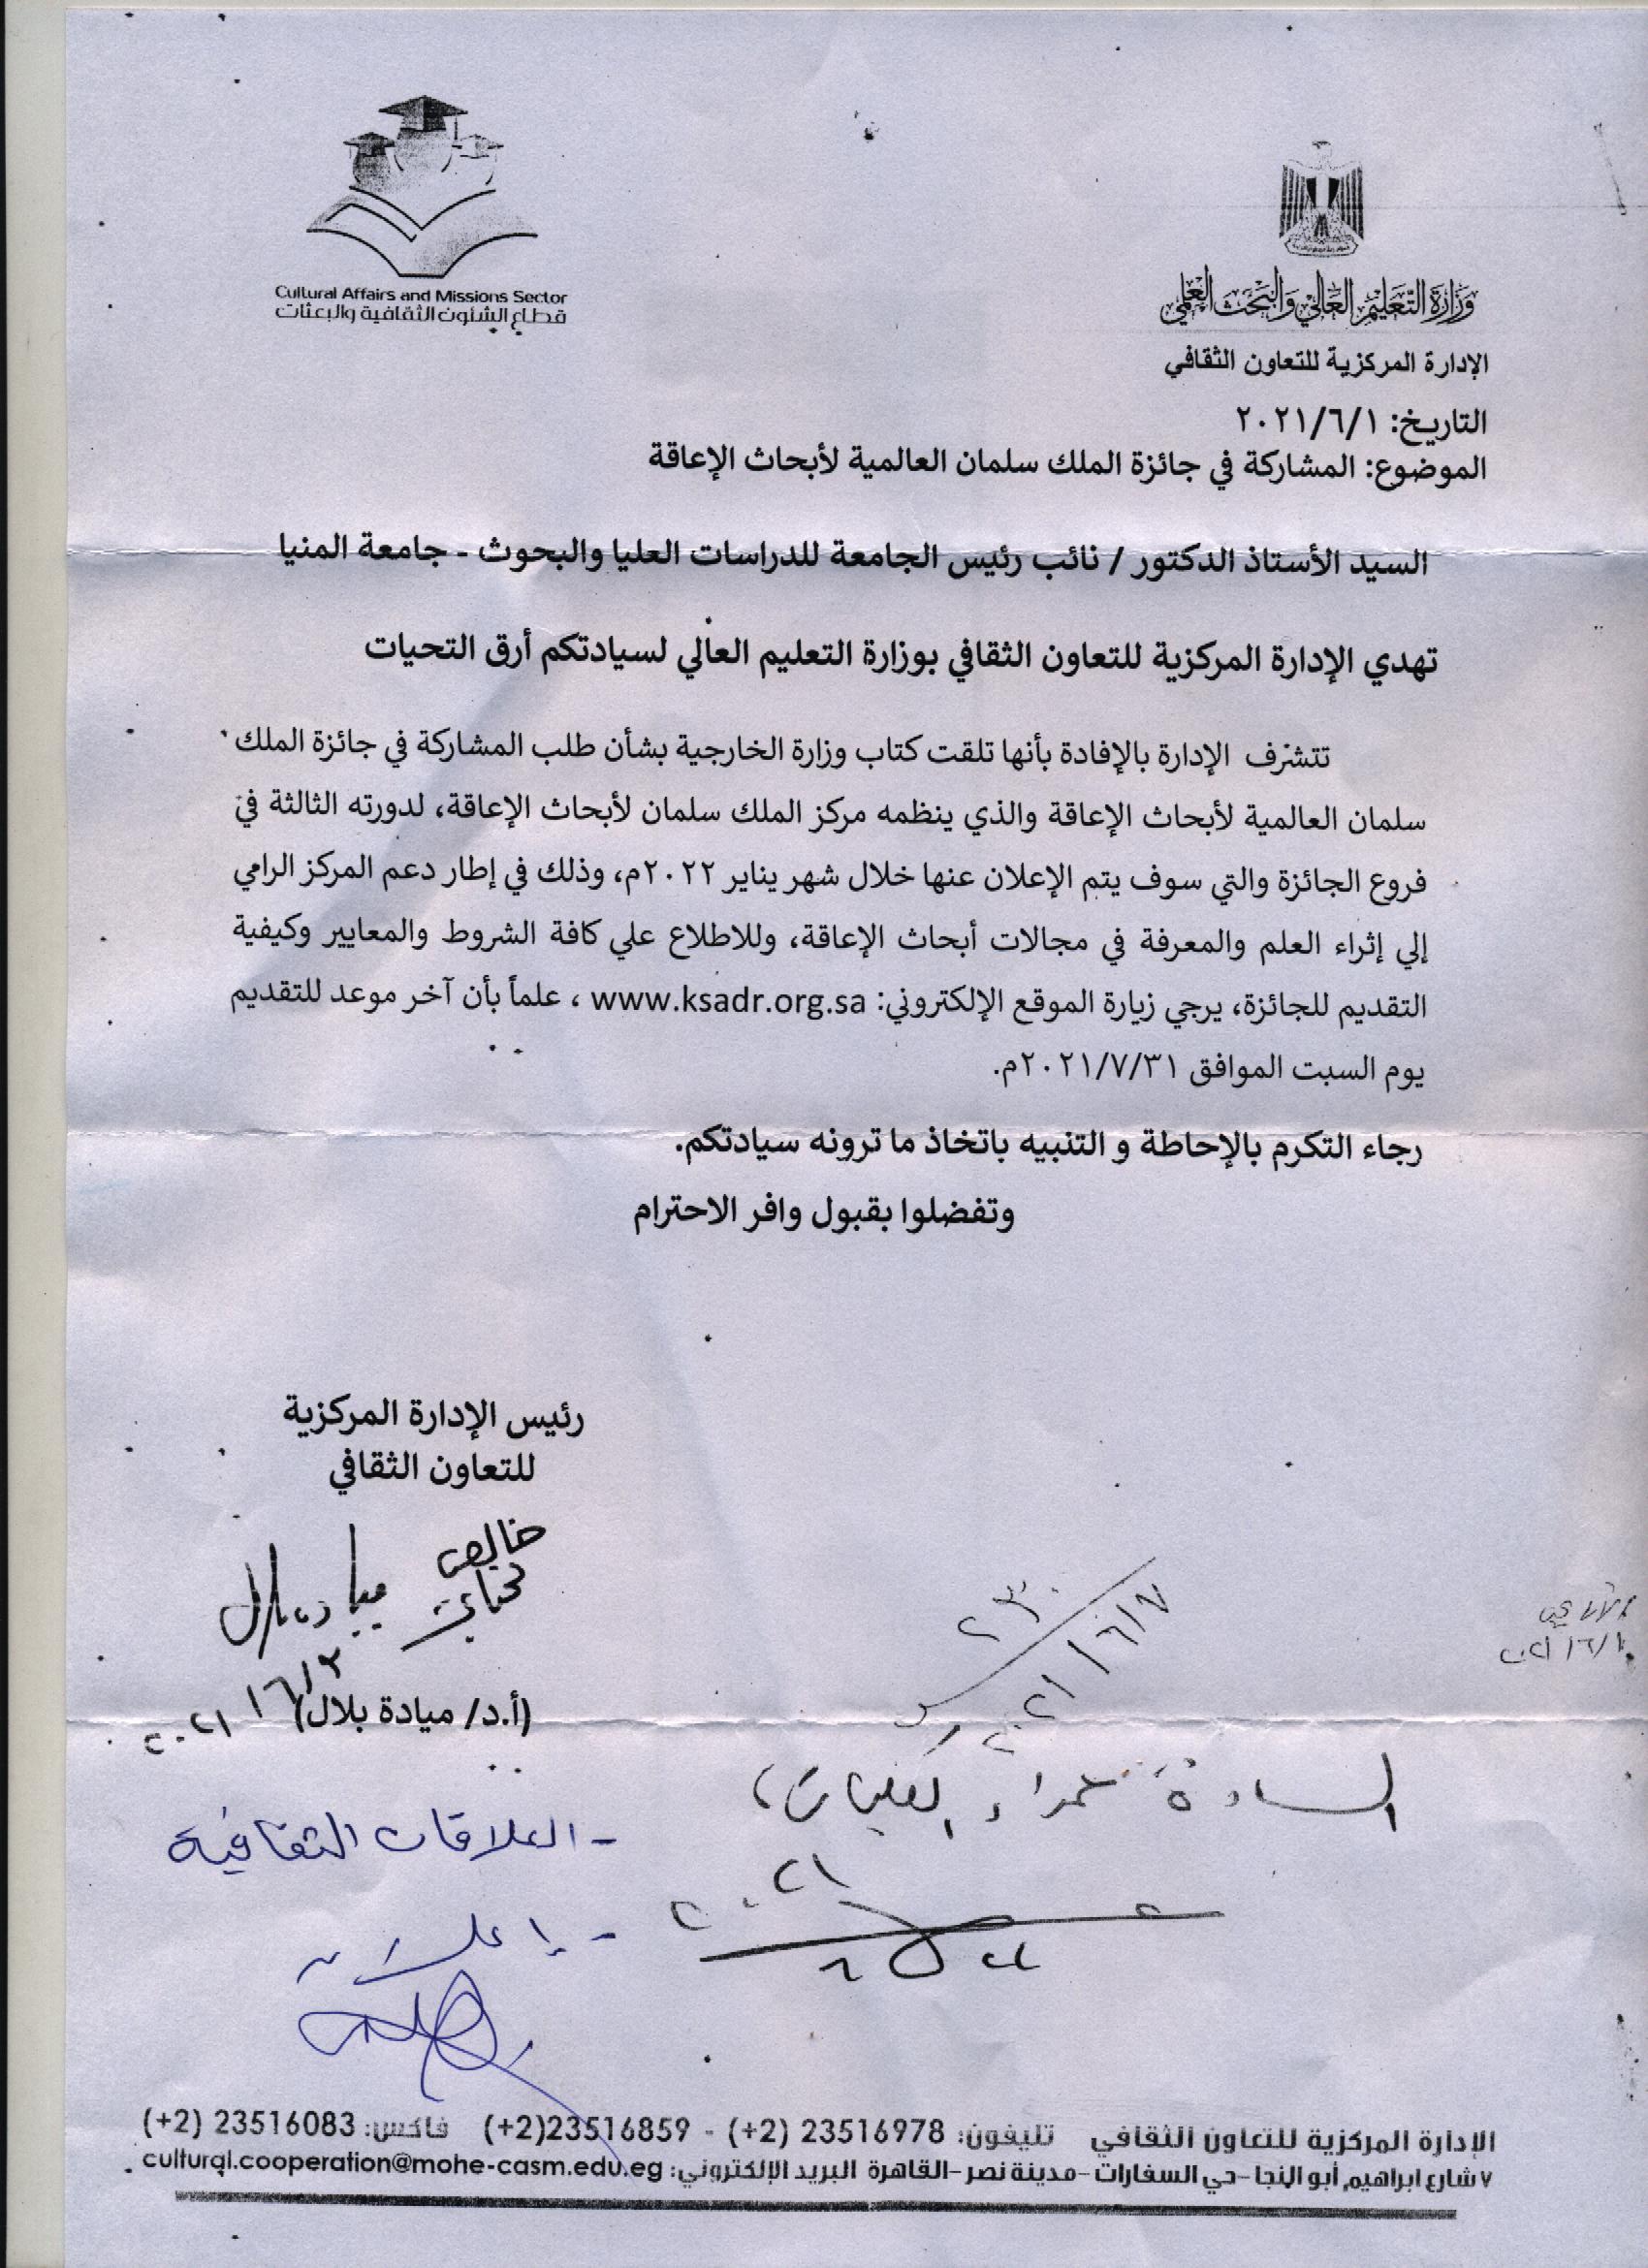 Cultural Affairs and Missions Sector
قطاع الشئون الثقافية والبعثات
وزارة التعليم العالي والبحث العلمي
الإدارة المركزية للتعاون الثقافي
التاريخ: ٢٠٢١/٦/١
الموضوع: المشاركة في جائزة الملك سلمان العالمية لأبحاث الإعاقة
السيد الأستاذ الدكتور / نائب رئيس الجامعة للدراسات العليا والبحوث - جامعة المنيا
تهدي الإدارة المركزية للتعاون الثقافي بوزارة التعليم العالي لسيادتكم أرق التحيات
تتشرف الإدارة بالإفادة بأنها تلقت كتاب وزارة الخارجية بشأن طلب المشاركة في جائزة الملك
سلمان العالمية لأبحاث الإعاقة والذي ينظمه مركز الملك سلمان لأبحاث الإعاقة، لدورته الثالثة في
فروع الجائزة والتي سوف يتم الإعلان عنها خلال شهر يناير ٢٠٢٢م، وذلك في إطار دعم المركز الرامي
إلي إثراء العلم والمعرفة في مجالات أبحاث الإعاقة، وللاطلاع علي كافة الشروط والمعايير وكيفية
التقديم للجائزة، يرجي زيارة الموقع الإلكتروني: www.ksadr.org.sa ، علماً بأن آخر موعد للتقديم
يوم السبت الموافق ٢٠٢١/٧/٣١م.
رجاء التكرم بالإحاطة و التنبيه باتخاذ ما ترونه سيادتكم.
وتفضلوا بقبول وافر الاحترام
رئيس الإدارة المركزية
للتعاون الثقافي
خالص
تحياتي
ميادة بلال
٢٠٢١/٦/٢
(أ.د/ ميادة بلال)
٢٣٠
٢٠٢١/٦/٧
٢٠٢١/٦/١٠
السادة عمداء الكليات
- العلاقات الثقافية
٢٠٢١
- إعلان
الإدارة المركزية للتعاون الثقافي تليفون: 23516978 (2+) - 23516859(2+) فاكس: 23516083 (2+)
٧ شارع ابراهيم أبو النجا -حي السفارات -مدينة نصر -القاهرة البريد الإلكتروني: cultural.cooperation@mohe-casm.edu.eg